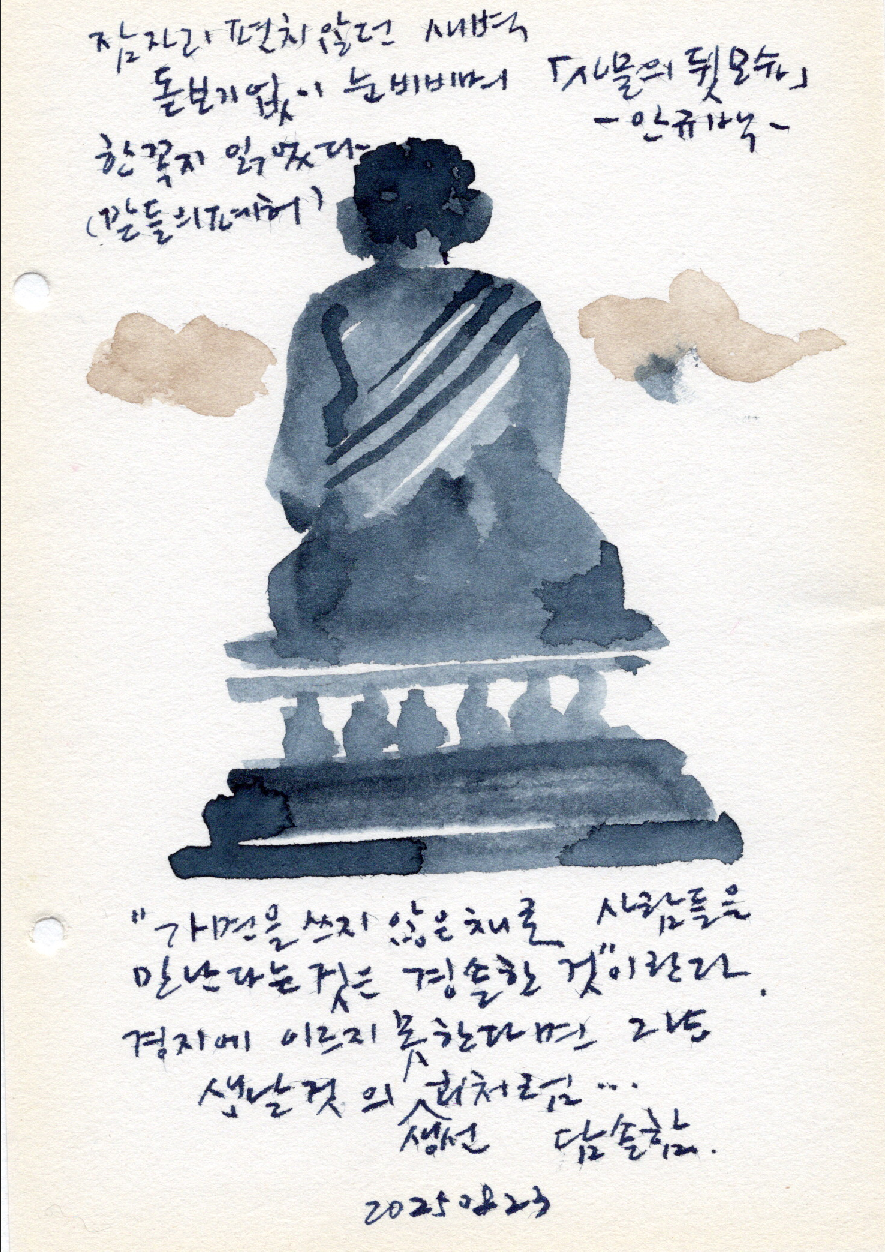 잠자리 편치 않던 새벽
돋보기 없이 눈 비비며
한 꼭지 읽었다
(말들의 폐허)
「사물의 뒷모습」
-안규백-
"가면을 쓰지 않은 채로 사람들을
만난다는 것은 경솔한 것"이란다.
경지에 이르지 못한다면 그냥
생날것의 생선회처럼...
담솔함.
20250823